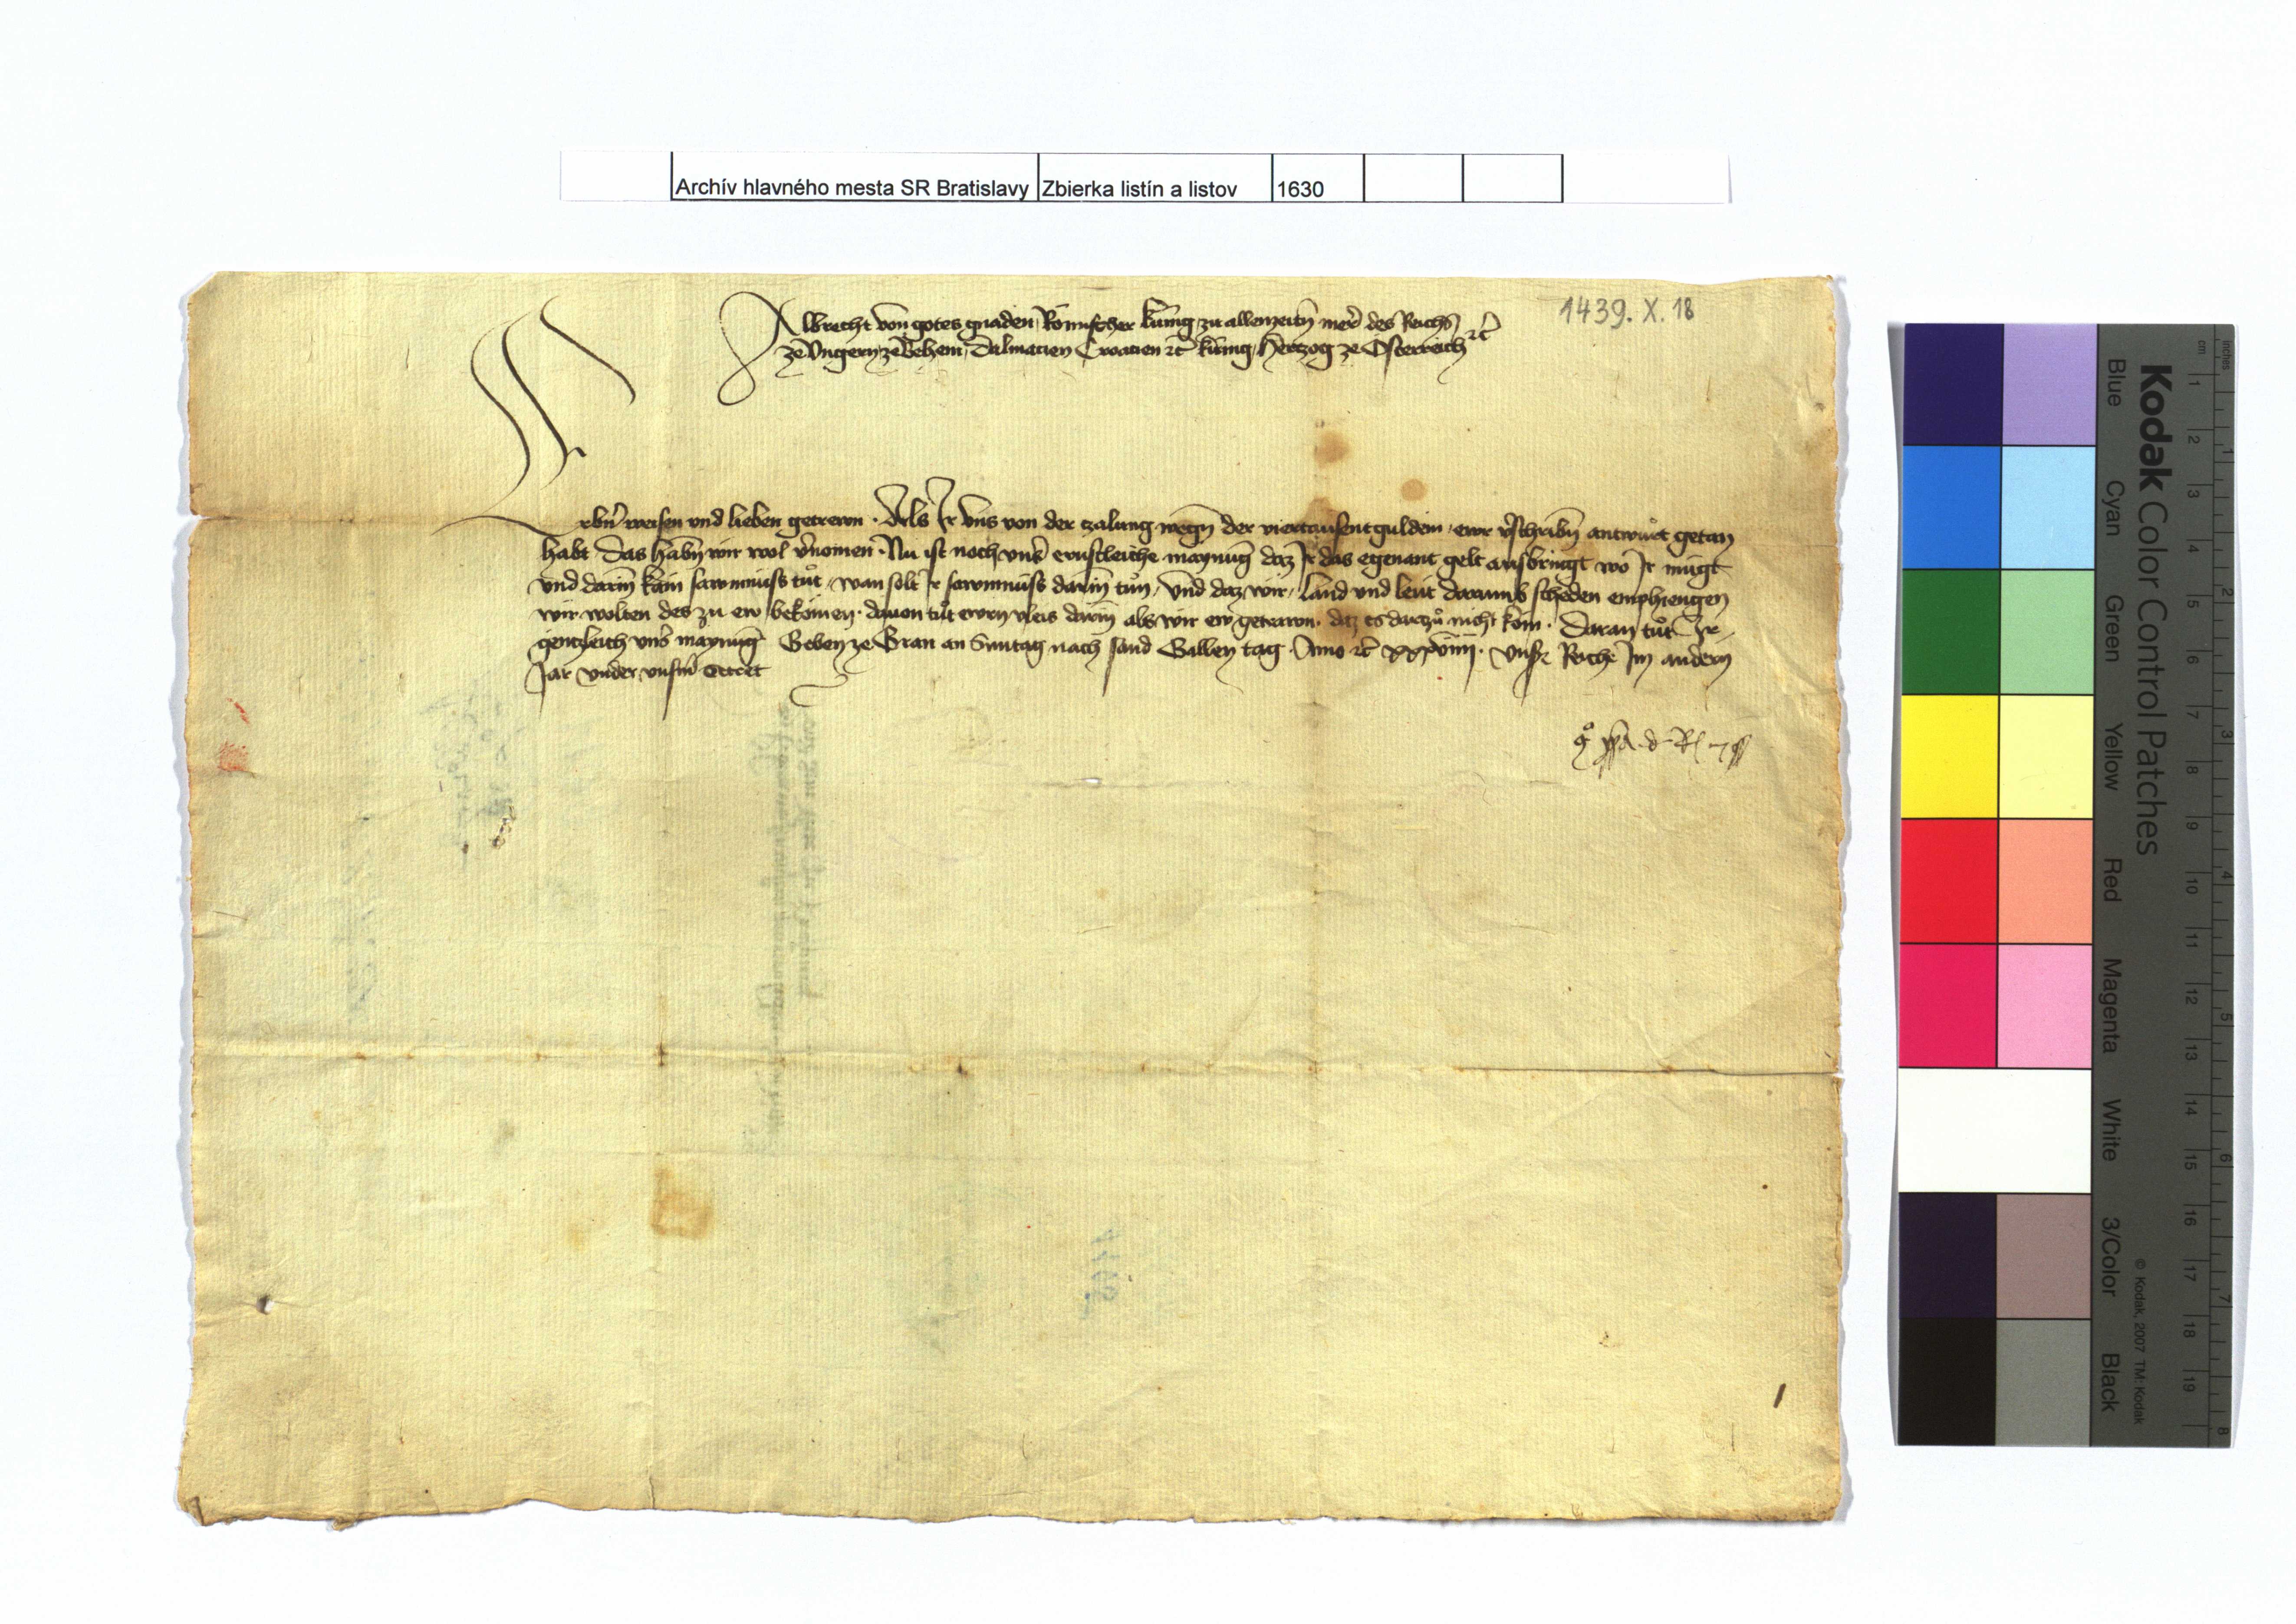 Archív hlavného mesta SR Bratislavy Zbierka listín a listov 1630
1439. X. 18
Albrecht von gotes gnaden Römischer künig zu allenzeitn̄ merer̄ des Reichs
ze Vngern, ze Behem, Dalmacien Croacien ꝛc̄ künig, Hertzog ze Österreich ꝛc̄
Erbn̄ weisen vnd lieben getrewn · Als Ir vns von der zalung wegn̄ der viertausent guldein, ewr v̄schribn̄ antwurt getan
habt Das habn̄ wir wol v̄nomen · Nu ist noch vns̄ ernstleiche maynūg daz Ir das egenant gelt ausbringt wo Ir mügt
vnd darin̄ kain sawmnuss tůt, wan solt Ir sawmnuss darin̄ tůn, vnd daz wir, land vnd leut darumb scheden emphiengen
wir wolten des zu ew bekömen · dauon tůt ewrn vleis darin̄ als wir ew getrawn · daz es dartzů nicht köm · Daran tůt Ir
gentzleich vns̄ maynūg Geben ze Gran an Suntag nach sand Gallen tag · Anno ꝛc̄ xxxviiii · Vnsr Reiche Im andern
Jar vnder vnsm̄ Secret
Kodak Color Control Patches
Blue Cyan Green Yellow Red Magenta White 3/Color Black
© Kodak, 2007 TM: Kodak
inches 1 2 3 4 5 6 7 8
cm 1 2 3 4 5 6 7 8 9 10 11 12 13 14 15 16 17 18 19